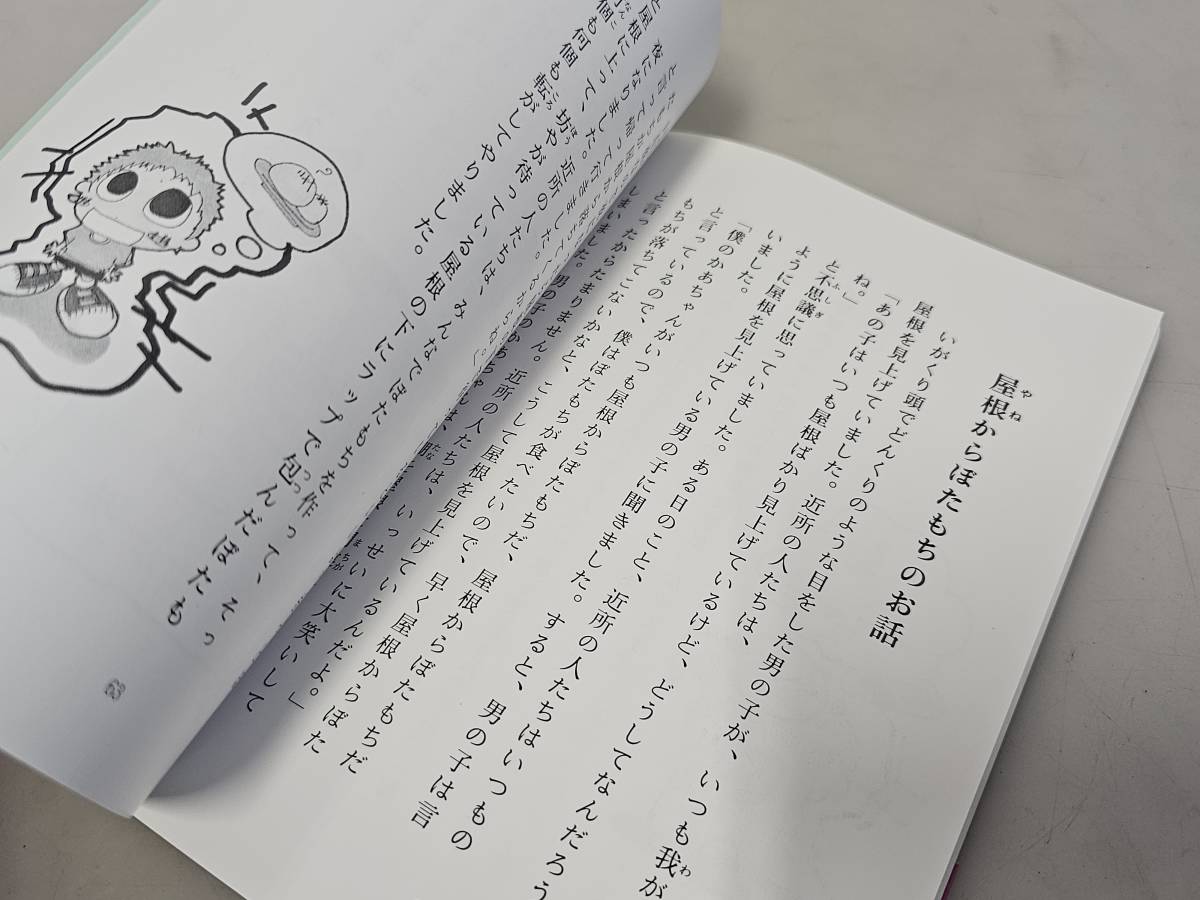 屋根からぼたもちのお話
いがくり頭でどんぐりのような目をした男の子が、いつも我が
屋根を見上げていました。近所の人たちは、
「あの子はいつも屋根ばかり見上げているけど、どうしてなんだろう
ね。」
と不思議に思っていました。ある日のこと、近所の人たちはいつもの
ように屋根を見上げている男の子に聞きました。すると、男の子は言
いました。
「僕のかあちゃんがいつも屋根からぼたもちだ、屋根からぼたもちだ
と言っているので、僕はぼたもちが食べたいので、早く屋根からぼた
もちが落ちてこないかなと、こうして屋根を見上げているんだよ。」
と言ったからたまりません。近所の人たちは、いっせいに大笑いして
しまいました。男の子のかあちゃんは、
と言って帰って行きました。
夜になりました。近所の人たちは、みんなでぼたもちを作って、そっ
と屋根に上って、坊やが待っている屋根の下にラップで包んだぼたも
個も何個も転がしてやりました。
63